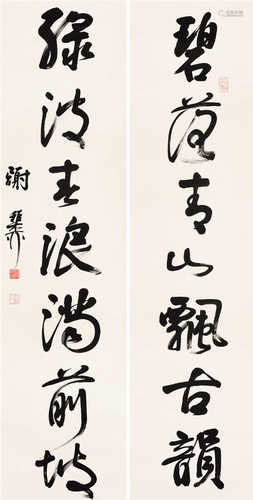 碧落青山飄古韻
綠波春浪滿前坡
謝稚柳